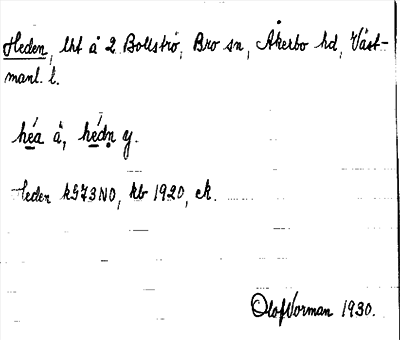 Heden, lht å 2 Bollströ, Bro sn, Åkerbo hd, Väst-
manl. l.
héa å, hédn y.
Heden k573NO, kb 1920, ek.
Olof Vorman 1930.